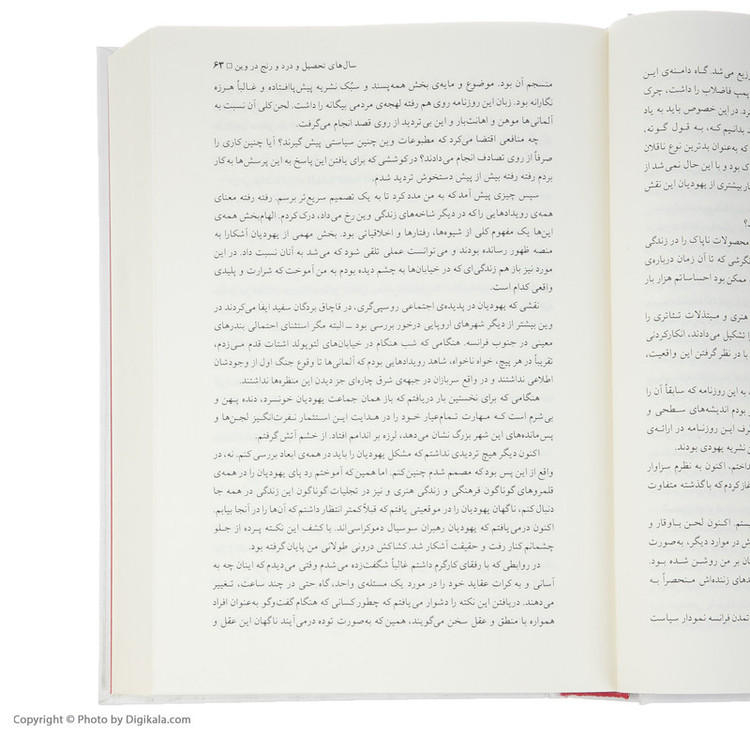 زیع می‌شد. گاه دامنه‌ی این
پمپ فاضلاب را داشت، چرک
رد. در این خصوص باید به یاد
بدانیم که، به قول گوته،
که به‌عنوان بدترین نوع ناقلان
ک بود و با این حال نمی‌شد از
بیشتری از یهودیان این نقش
محصولات ناپاک را در زندگی
نگرشی که تا آن زمان درباره‌ی
ممکن بود احساساتم هزار بار
هنری و مبتذلات تئاتری را
را تشکیل می‌دادند، انکارکردنی
با در نظر گرفتن این واقعیت،
به این روزنامه که سابقاً آن را
بودم اندیشه‌های سطحی و
رف این روزنامه در ارائه‌ی
نشریه یهودی بودند.
داختم، اکنون به نظرم سزاوار
غاز کردم که با گذشته متفاوت
ستم. اکنون لحن باوقار و
ش در موارد دیگر، به‌صورت
ن بر من روشن شده بود.
دهای زنده‌اش منحصراً به
تمدن فرانسه نمودار سیاست
سال‌های تحصیل و درد و رنج در وین □ ۶۳
منسجم آن بود. موضوع و مایه‌ی بخش همه‌پسند و سبُک نشریه پیش‌پاافتاده و غالباً هرزه
نگارانه بود. زبان این روزنامه روی هم رفته لهجه‌ی مردمی بیگانه را داشت. لحن کلی آن نسبت به
آلمانی‌ها موهن و اهانت‌بار و این بی‌تردید از روی قصد انجام می‌گرفت.
چه منافعی اقتضا می‌کرد که مطبوعات وین چنین سیاستی پیش گیرند؟ آیا چنین کاری را
صرفاً از روی تصادف انجام می‌دادند؟ در کوششی که برای یافتن این پاسخ به این پرسش‌ها به کار
بردم رفته رفته بیش از پیش دستخوش تردید شدم.
سپس چیزی پیش آمد که به من مدد کرد تا به یک تصمیم سریع‌تر برسم. رفته رفته معنای
همه‌ی رویدادهایی را که در دیگر شاخه‌های زندگی وین رخ می‌داد، درک کردم. الهام‌بخش همه‌ی
این‌ها یک مفهوم کلی از شیوه‌ها، رفتارها و اخلاقیاتی بود. بخش مهمی از یهودیان آشکارا به
منصه ظهور رسانده بودند و می‌توانست عملی تلقی شود که می‌شد به آنان نسبت داد. در این
مورد نیز باز هم زندگی‌ای که در خیابان‌ها به چشم دیده بودم به من آموخت که شرارت و پلیدی
واقعی کدام است.
نقشی که یهودیان در پدیده‌ی اجتماعی روسپی‌گری، در قاچاق بردگان سفید ایفا می‌کردند در
وین بیشتر از دیگر شهرهای اروپایی درخور بررسی بود ــ البته مگر استثنای احتمالی بندرهای
معینی در جنوب فرانسه. هنگامی که شب هنگام در خیابان‌های لئوپولد اشتات قدم می‌زدم،
تقریباً در هر پیچ، خواه ناخواه، شاهد رویدادهایی بودم که آلمانی‌ها تا وقوع جنگ اول از وجودشان
اطلاعی نداشتند و در واقع سربازان در جبهه‌ی شرق چاره‌ای جز دیدن این منظره‌ها نداشتند.
هنگامی که برای نخستین بار دریافتم که باز همان جماعت یهودیان خونسرد، دنده پهن و
بی‌شرم است که مهارت تمام‌عیار خود را در هدایت این استثمار نفرت‌انگیز لجن‌ها و
پس‌مانده‌های این شهر بزرگ نشان می‌دهد، لرزه بر اندامم افتاد. از خشم آتش گرفتم.
اکنون دیگر هیچ تردیدی نداشتم که مشکل یهودیان را باید در همه‌ی ابعاد بررسی کنم. نه، در
واقع از این پس بود که مصمم شدم چنین کنم. اما همین که آموختم رد پای یهودیان را در همه‌ی
قلمروهای گوناگون فرهنگی و زندگی هنری و نیز در تجلیات گوناگون این زندگی در همه جا
دنبال کنم، ناگهان یهودیان را در موقعیتی یافتم که قبلاً کمتر انتظار داشتم که آن‌ها را در آنجا بیابم.
اکنون درمی‌یافتم که یهودیان رهبران سوسیال دموکراسی‌اند. با کشف این نکته پرده از جلو
چشمانم کنار رفت و حقیقت آشکار شد. کشاکش درونی طولانی من پایان گرفته بود.
در روابطی که با رفقای کارگرم داشتم غالباً شگفت‌زده می‌شدم وقتی می‌دیدم که اینان چه به
آسانی و به کرات عقاید خود را در مورد یک مسئله‌ی واحد، گاه حتی در چند ساعت، تغییر
می‌دهند. دریافتن این نکته را دشوار می‌یافتم که چطور کسانی که هنگام گفت‌وگو به‌عنوان افراد
همواره با منطق و عقل سخن می‌گویند، همین که به‌صورت توده درمی‌آیند ناگهان این عقل و
Copyright © Photo by Digikala.com